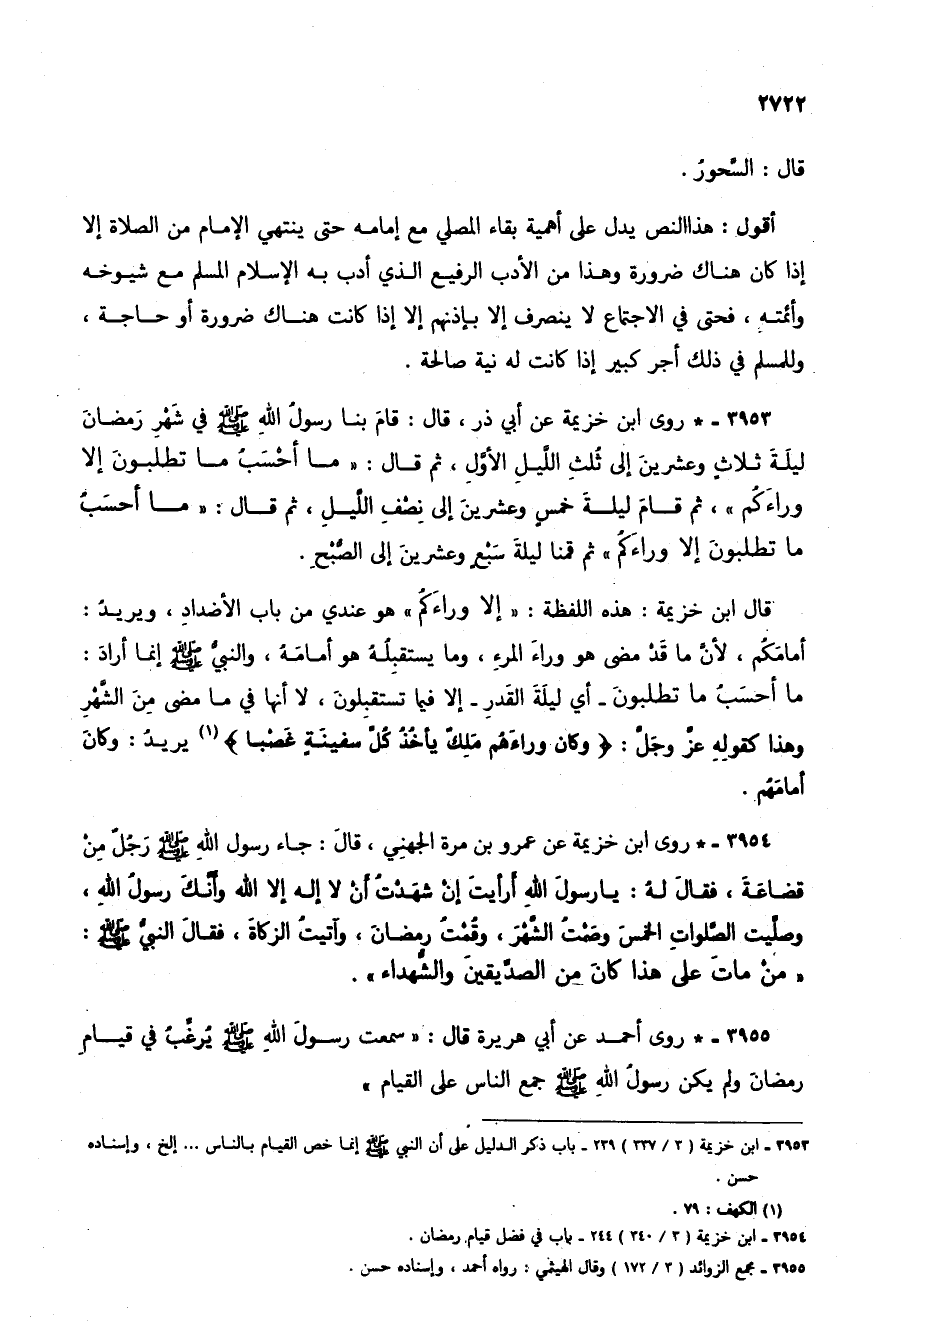 ٢٧٢٢
قال : السَّحورُ .
أقول : هذاالنص يدل على أهمية بقاء المصلي مع إمامه حتى ينتهي الإمام من الصلاة إلا
إذا كان هناك ضرورة وهذا من الأدب الرفيع الذي أدب به الإسلام المسلم مع شيوخه
وأئمته ، فحتى في الاجتماع لا ينصرف إلا بإذنهم إلا إذا كانت هناك ضرورة أو حاجة ،
وللمسلم في ذلك أجر كبير إذا كانت له نية صالحة .
٣٩٥٣ ـ * روى ابن خزيمة عن أبي ذر ، قال : قامَ بنا رسولُ اللهِ ﷺ في شَهْرِ رَمضانَ
ليلَةَ ثلاثٍ وعشرينَ إلى ثُلثِ اللَّيلِ الأوَّلِ ، ثم قال : « ما أحْسَبُ ما تطلبونَ إلا
وراءَكُم » ، ثم قامَ ليلةَ خمسٍ وعشرينَ إلى نِصْفِ اللَّيلِ ، ثم قال : « ما أحسَبُ
ما تطلبونَ إلا وراءَكُم » ثم قمنا ليلةَ سَبْعٍ وعشرينَ إلى الصُّبْحِ .
قال ابن خزيمة : هذه اللفظة : « إلا وراءَكُم » هو عندي من باب الأضدادِ ، ويريدُ :
أمامَكُم ، لأنَّ ما قَدْ مضى هو وراءَ المرءِ ، وما يستقبِلُهُ هو أمامَهُ ، والنبيُّ ﷺ إنما أرادَ :
ما أحسَبُ ما تطلبونَ ـ أي ليلَةَ القَدرِ ـ إلا فيما تستقبِلونَ ، لا أنها في ما مضى مِنَ الشَّهْرِ
وهذا كقولِهِ عزَّ وجَلَّ : ﴿ وكان وراءَهُم مَلِكٌ يأخُذُ كُلَّ سفينَةٍ غَصْبا ﴾(١) يريدُ : وكانَ
أمامَهُم .
٣٩٥٤ ـ * روى ابن خزيمة عن عمرو بن مرة الجهني ، قالَ : جاء رسول اللهِ ﷺ رَجُلٌ مِنْ
قضاعَةَ ، فقالَ لهُ : يارسولَ اللهِ أرأيتَ إنْ شهَدْتُ أنْ لا إله إلا الله وأنَّكَ رسولُ اللهِ ،
وصلَّيت الصَّلواتِ الخمسَ وصَمْتُ الشَّهْرَ ، وقُمْتُ رمضانَ ، وآتيتُ الزكاةَ ، فقالَ النبيُّ ﷺ :
« منْ ماتَ على هذا كانَ مِن الصدَّيقينَ والشُّهداء » .
٣٩٥٥ ـ * روى أحمد عن أبي هريرة قال : « سمعت رسولَ اللهِ ﷺ يُرغِّبُ في قيامِ
رمضانَ ولم يكن رسولُ اللهِ ﷺ جمع الناس على القيام »
٣٩٥٣ ـ ابن خزيمة ( ٣ / ٣٣٧ ) ٢٣٩ ـ باب ذكر الدليل على أن النبي ﷺ إنما خص القيام بالناس ... إلخ ، وإسناده
حسن .
(١) الكهف : ٧٩ .
٣٩٥٤ ـ ابن خزيمة ( ٣ / ٣٤٠ ) ٢٤٤ ـ باب في فضل قيام رمضان .
٣٩٥٥ ـ مجمع الزوائد ( ٣ / ١٧٢ ) وقال الهيثمي : رواه أحمد ، وإسناده حسن .